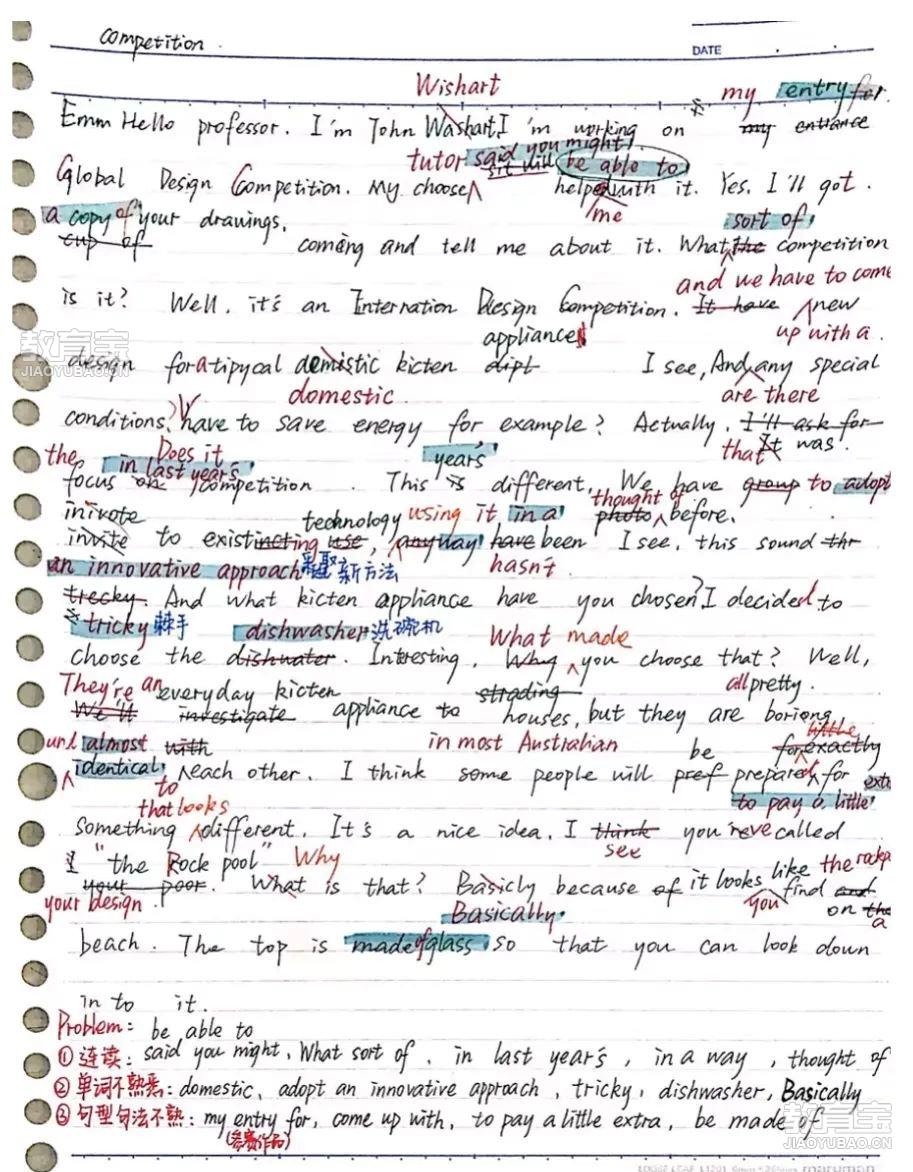 competition.
DATE
Wishart
my entry for
Emm Hello professor. I'm John Washart, I'm working on my entrance
tutor said you might be able to
Global Design Competition. My choose help with it. Yes. I'll got.
me
a copy of your drawings,
sort of
cup of coming and tell me about it. What the competition
and we have to come
is it? Well, it's an Internation Design Competition. It have new
appliance up with a.
design for a tipycal domistic kicten dipt I see, And any special
domestic are there
conditions, have to save energy for example? Actually, I'll ask for
the Does it year's that It was
in last year's
focus on competition. This is different. We have group to adopt
thought of
inivote technology using it in a photo before.
invite to existincting use, anyway have been I see, this sound thr
an innovative approach 采取新方法 hasn't
trecky. And what kicten appliance have you chosen? I decided to
tricky 棘手 dishwasher 洗碗机 What made
choose the dishwater. Interesting, Why you choose that? Well,
They're an everyday kicten strading all pretty.
We'll investigate appliance to houses, but they are boriong
und almost with in most Australian be for exactly
identical, each other. I think some people will pref prepared for ext
to to pay a little
that looks
something different. It's a nice idea. I think you're've called
see
I "the Rock pool" Why
your poor. What is that? Basicly because of it looks like the rockp
your design. you find and
Basically on the
a
beach. The top is made of glass so that you can look down
in to it.
Problem: be able to
①连读: said you might, What sort of, in last year's, in a way, thought of
②单词不熟悉: domestic, adopt an innovative approach, tricky, dishwasher, Basically
③句型句法不熟: my entry for, come up with, to pay a little extra, be made of
(参赛作品)
教育宝
JIAOYUBAO.CN
教育宝
JIAOYUBAO.CN
maruman